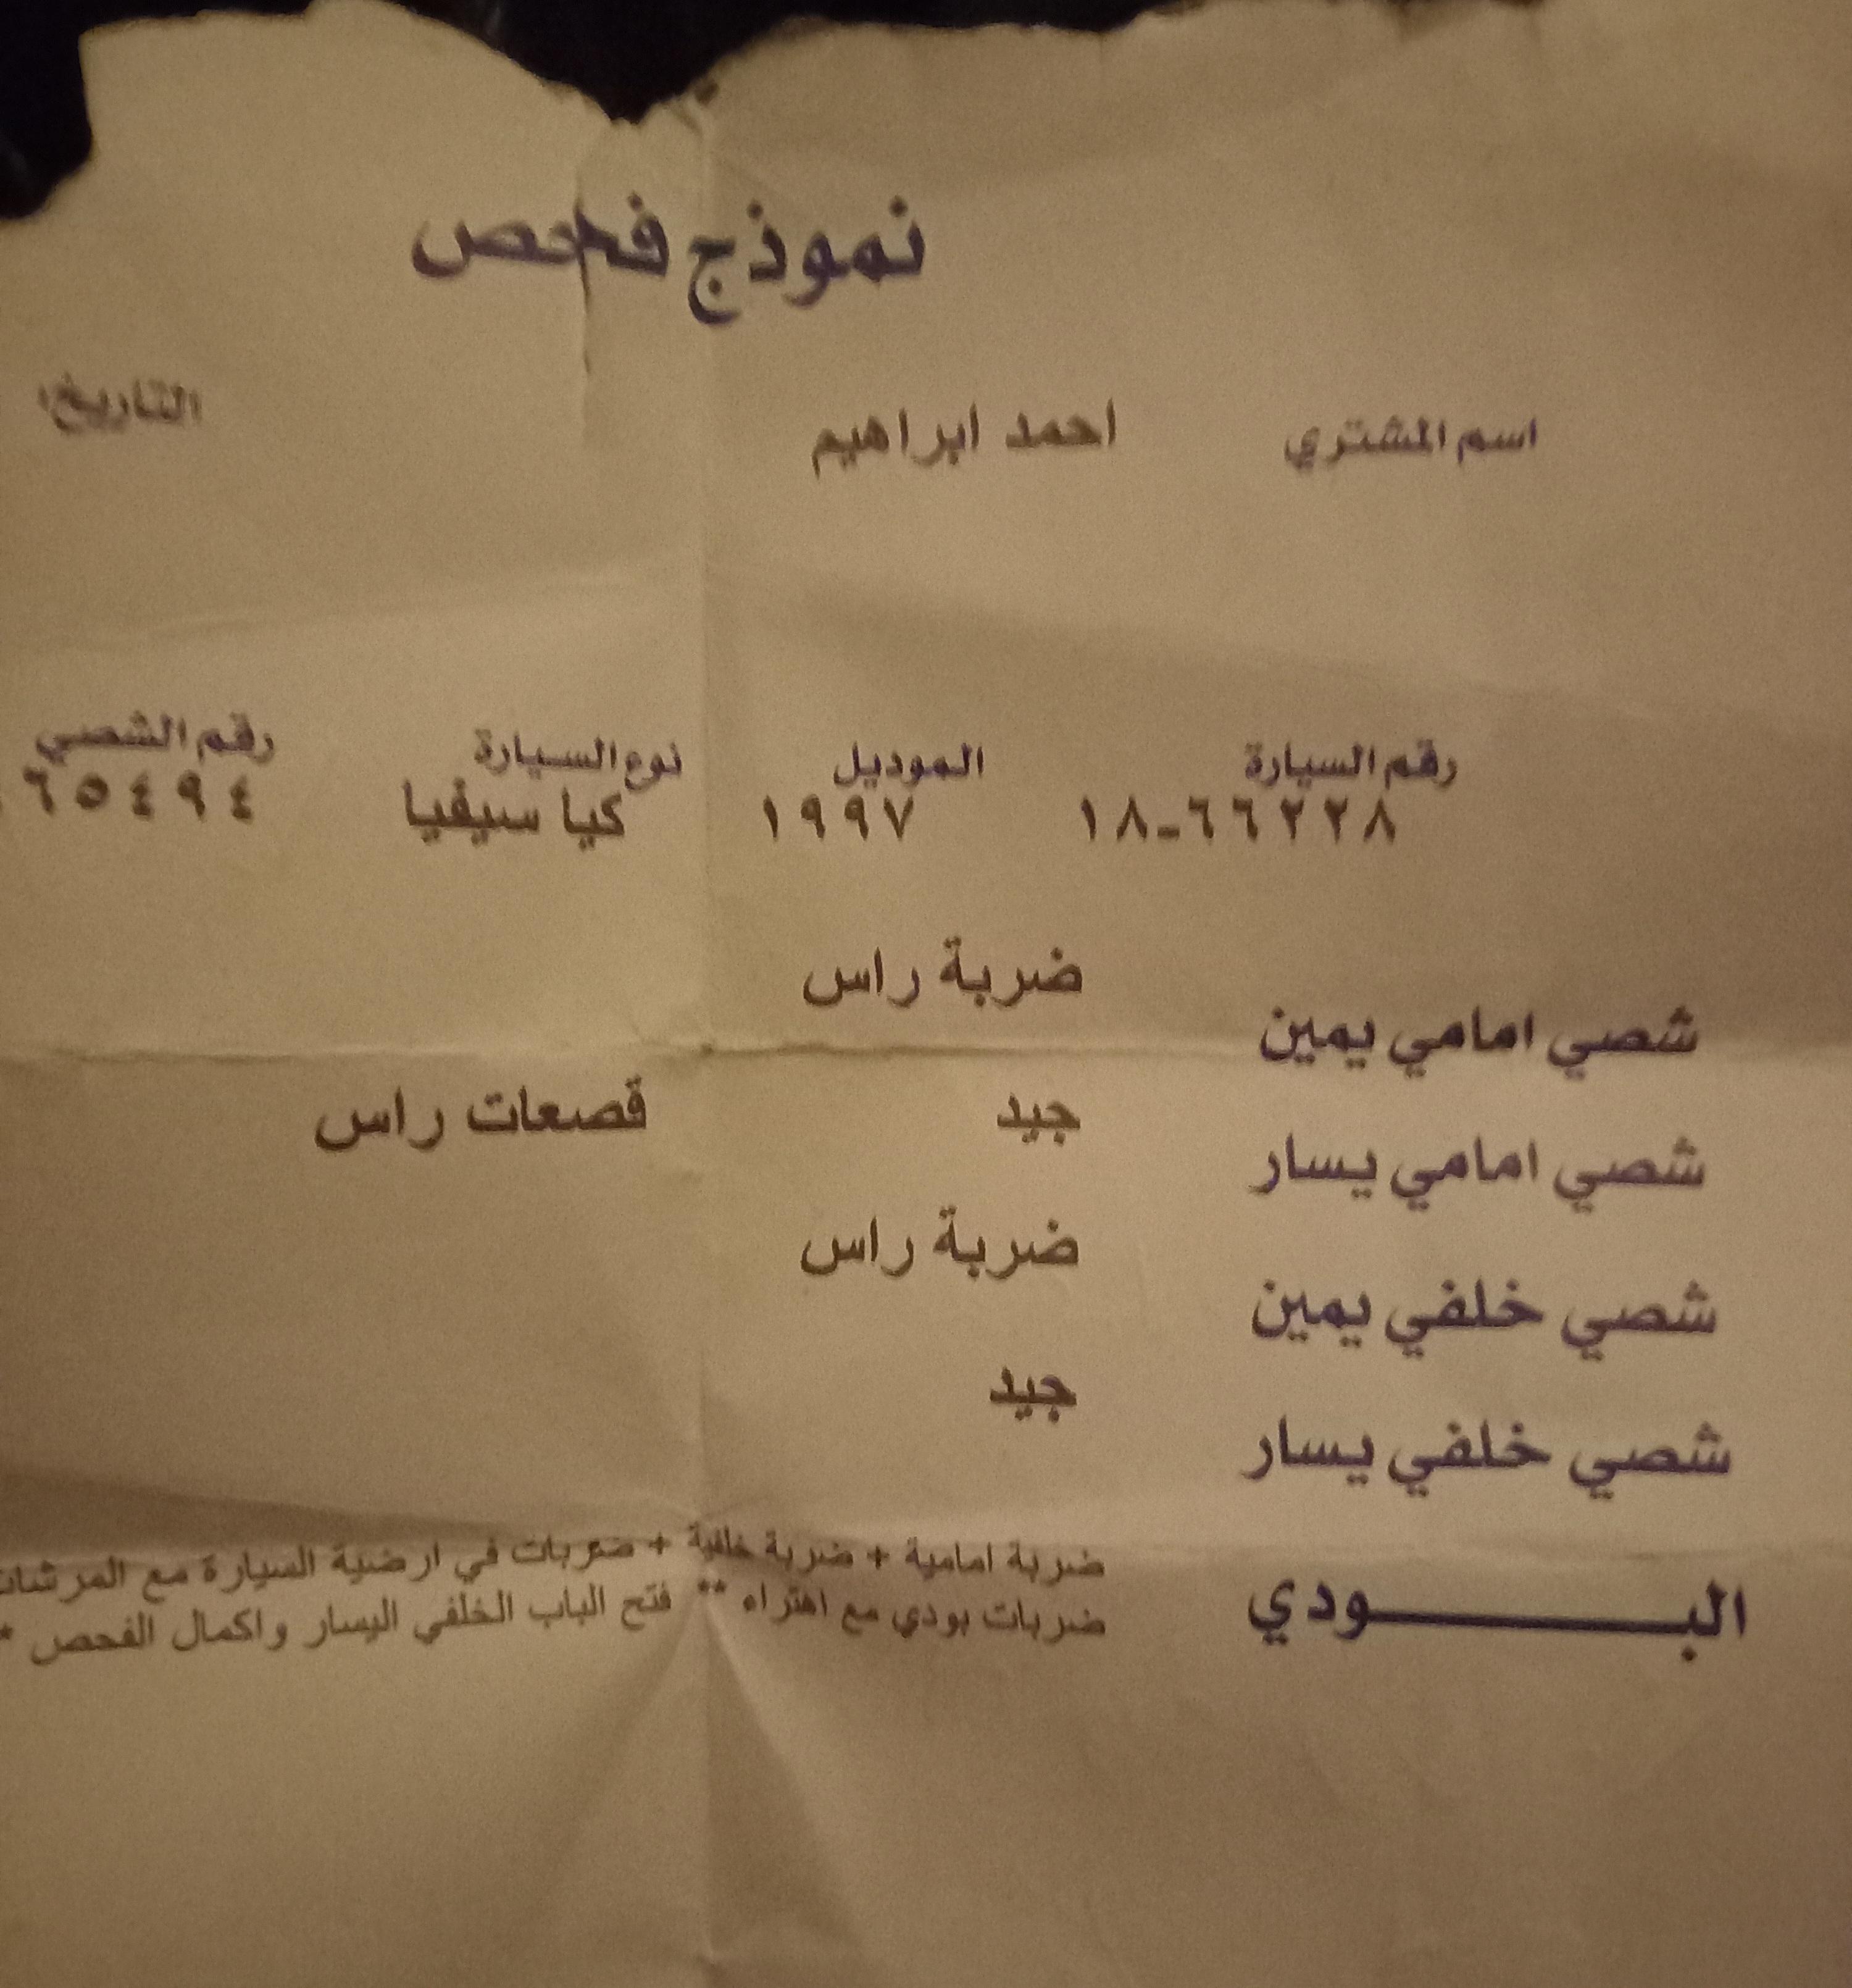 نموذج فحص
اسم المشتري احمد ابراهيم التاريخ:
رقم السيارة الموديل نوع السيارة رقم الشصي
١٨-٦٦٢٢٨ ١٩٩٧ كيا سيفيا ٦٥٤٩٤
ضربة راس
شصي امامي يمين
جيد قصعات راس
شصي امامي يسار
ضربة راس
شصي خلفي يمين
جيد
شصي خلفي يسار
ضربة امامية + ضربة خلفية + ضربات في ارضية السيارة مع المرشات
البـــــــودي ضربات بودي مع اهتراء ** فتح الباب الخلفي اليسار واكمال الفحص *